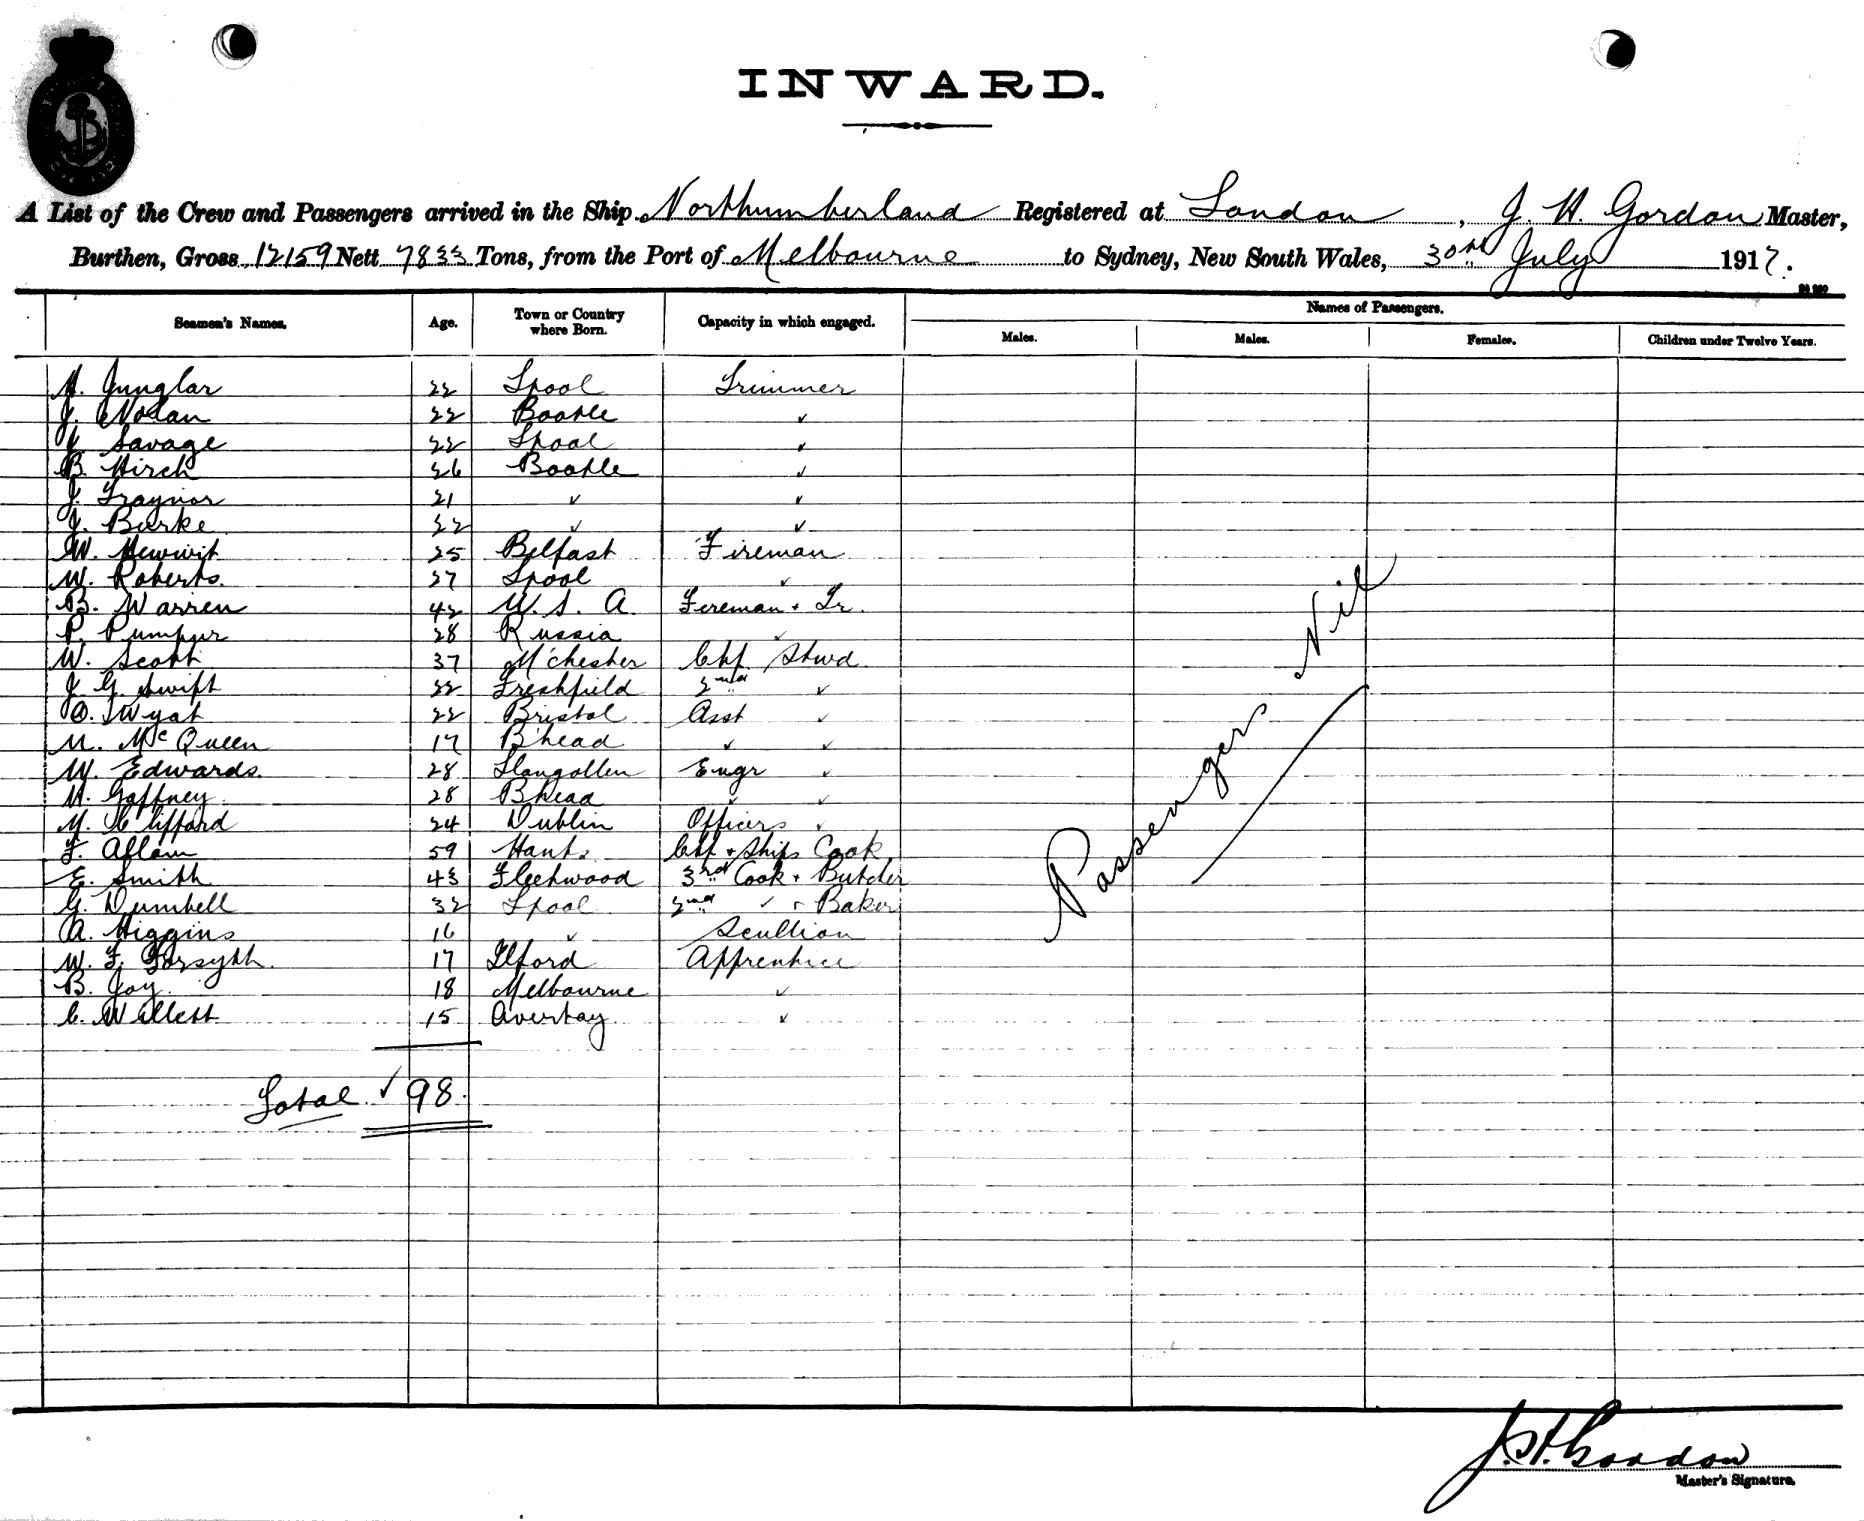 INWARD.
A List of the Crew and Passengers arrived in the Ship Northumberland Registered at London, J. H. Gordon Master,
Burthen, Gross 12159 Nett 7833 Tons, from the Port of Melbourne to Sydney, New South Wales, 30th July 1917.
Names of Passengers.
Seamen's Names. Age. Town or Country where Born. Capacity in which engaged. Males. Males. Females. Children under Twelve Years.
H. Junglar 22 Lpool Trimmer
J. Nolan 22 Bootle ✓
Savage 22 Lpool ✓
B. Hirch 26 Bootle ✓
J. Traynor 21 ✓ ✓
J. Burke 22 ✓ ✓
W. Hewwit 25 Belfast Fireman
W. Roberts. 27 Lpool ✓
B. Warren 42 U. S. A. Fireman + Tr.
P. 28 Russia ✓
W. Scott 37 M'chester Chf Stwd.
J. G. Swift 22 Freshfield 2nd ✓
O. Wyat 22 Bristol Asst ✓
M. McQueen 17 B'head ✓ ✓
W. Edwards. 28 Llangollen Engr ✓
H. Gaffney 28 Bhead ✓ ✓
M. Clifford 24 Dublin Officers ✓
F. Aflam 59 Hants Chf + Ships Cook
E. Smith 43 Fleetwood 3rd Cook + Butcher
G. Dumbell 32 Lpool 2nd ✓ + Baker
A. Higgins 16 ✓ Scullion
W. F. Forsyth. 17 Ilford Apprentice
B. Joy. 18 Melbourne ✓
C. Willett 15 Avertay ✓
Passenger Nil
Total ✓ 98.
J. H. Gordon
Master's Signature.